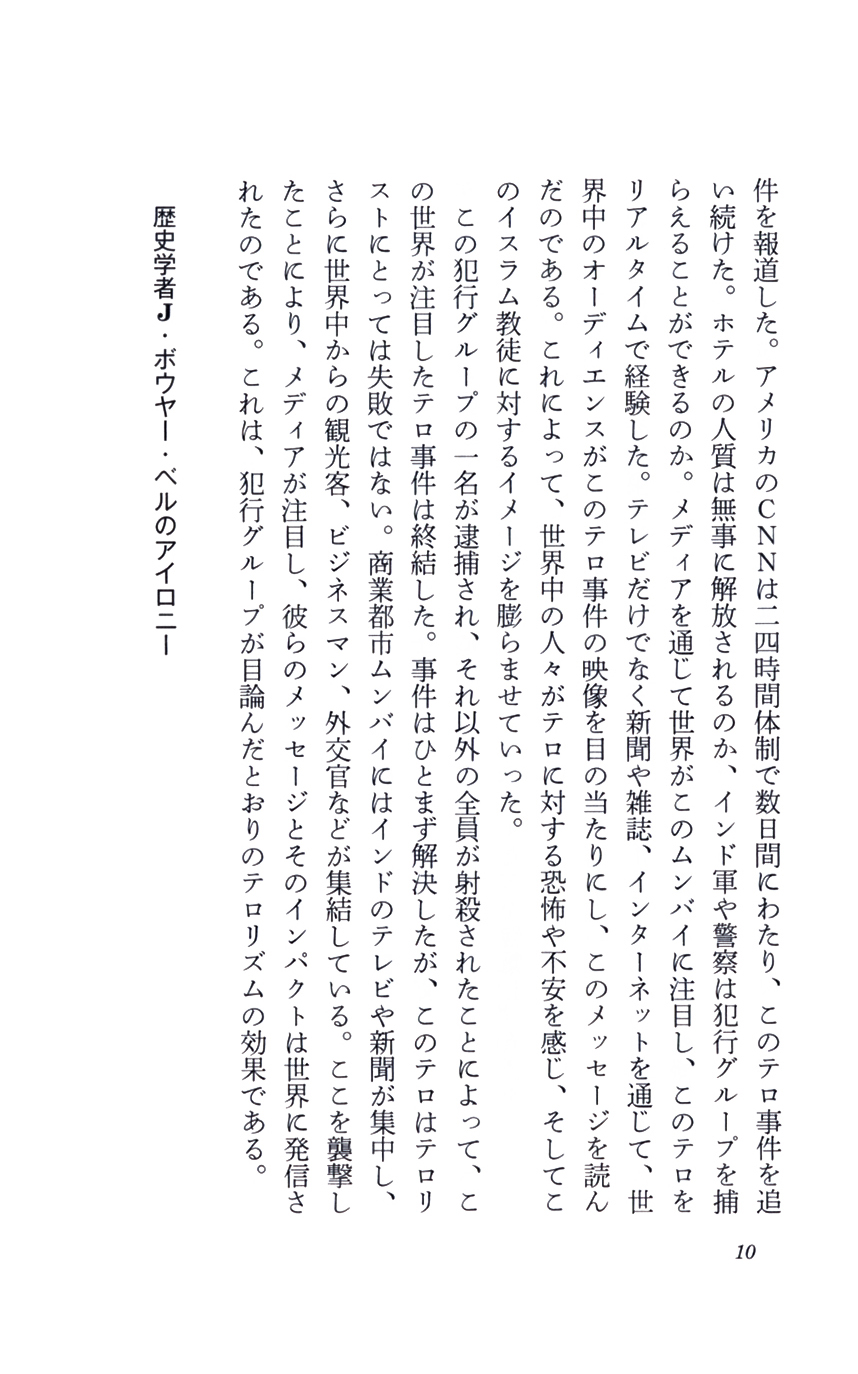 件を報道した。アメリカのCNNは二四時間体制で数日間にわたり、このテロ事件を追
い続けた。ホテルの人質は無事に解放されるのか、インド軍や警察は犯行グループを捕
らえることができるのか。メディアを通じて世界がこのムンバイに注目し、このテロを
リアルタイムで経験した。テレビだけでなく新聞や雑誌、インターネットを通じて、世
界中のオーディエンスがこのテロ事件の映像を目の当たりにし、このメッセージを読ん
だのである。これによって、世界中の人々がテロに対する恐怖や不安を感じ、そしてこ
のイスラム教徒に対するイメージを膨らませていった。
この犯行グループの一名が逮捕され、それ以外の全員が射殺されたことによって、こ
の世界が注目したテロ事件は終結した。事件はひとまず解決したが、このテロはテロリ
ストにとっては失敗ではない。商業都市ムンバイにはインドのテレビや新聞が集中し、
さらに世界中からの観光客、ビジネスマン、外交官などが集結している。ここを襲撃し
たことにより、メディアが注目し、彼らのメッセージとそのインパクトは世界に発信さ
れたのである。これは、犯行グループが目論んだとおりのテロリズムの効果である。
歴史学者J・ボウヤー・ベルのアイロニー
10